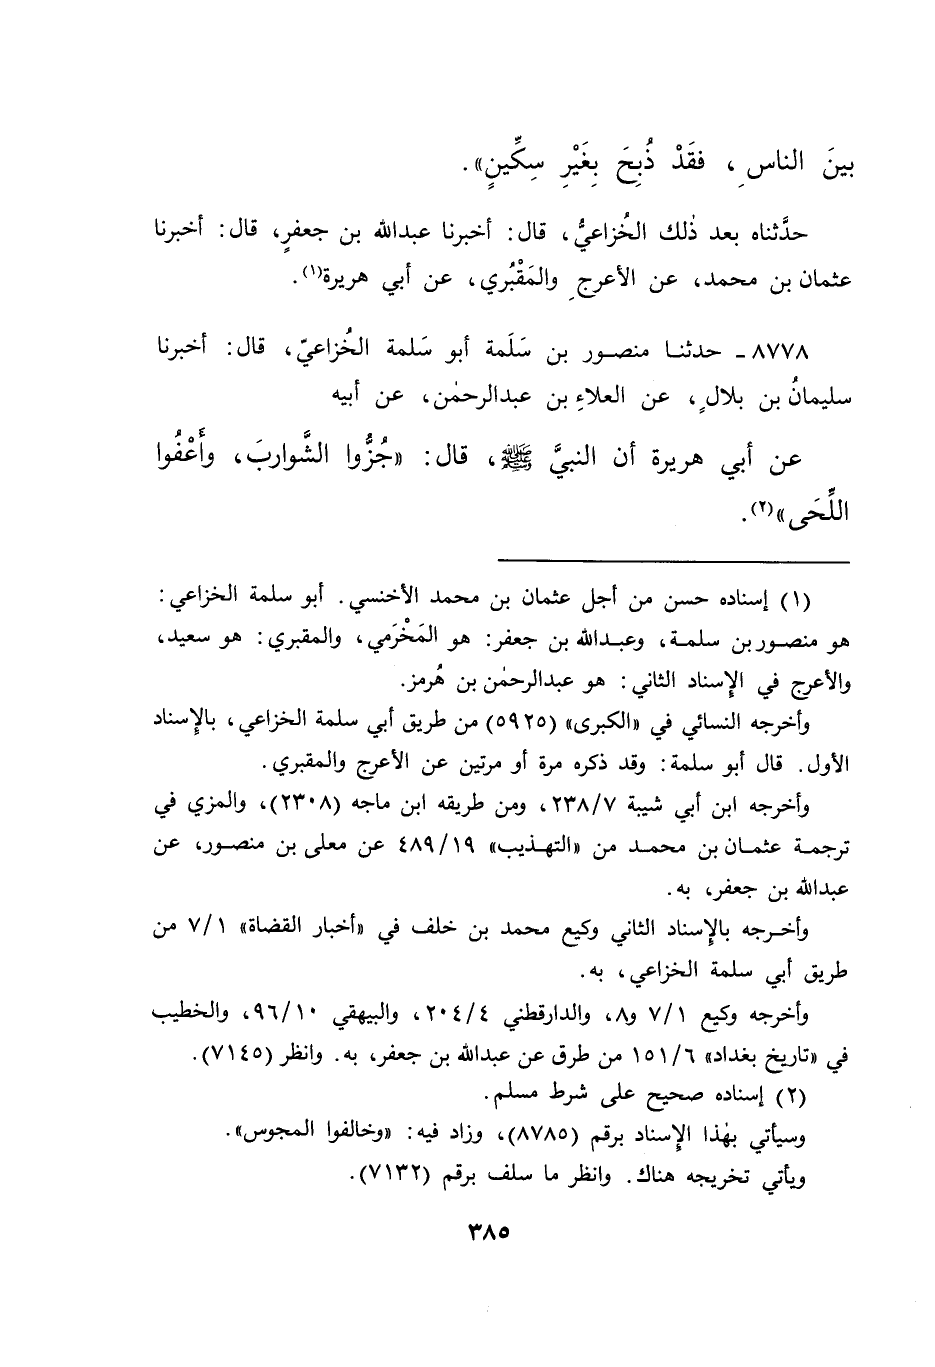 بينَ الناسِ، فقَدْ ذُبِحَ بِغَيْرِ سِكِّينٍ».
حدَّثناه بعد ذٰلك الخُزاعيُّ، قال: أخبرنا عبدالله بن جعفرٍ، قال: أخبرنا
عثمان بن محمد، عن الأعرجِ والمَقْبُري، عن أبي هريرة(١).
٨٧٧٨ ـ حدثنا منصور بن سَلَمة أبو سَلمة الخُزاعيّ، قال: أخبرنا
سليمانُ بن بلالٍ، عن العلاءِ بن عبدالرحمٰن، عن أبيه
عن أبي هريرة أن النبيَّ ﷺ، قال: «جُزُّوا الشَّواربَ، وأَعْفُوا
اللِّحَى»(٢).
(١) إسناده حسن من أجل عثمان بن محمد الأخنسي. أبو سلمة الخزاعي:
هو منصور بن سلمة، وعبدالله بن جعفر: هو المَخْرَمي، والمقبري: هو سعيد،
والأعرج في الإسناد الثاني: هو عبدالرحمٰن بن هُرمز.
وأخرجه النسائي في «الكبرى» (٥٩٢٥) من طريق أبي سلمة الخزاعي، بالإسناد
الأول. قال أبو سلمة: وقد ذكره مرة أو مرتين عن الأعرج والمقبري.
وأخرجه ابن أبي شيبة ٢٣٨/٧، ومن طريقه ابن ماجه (٢٣٠٨)، والمزي في
ترجمة عثمان بن محمد من «التهذيب» ٤٨٩/١٩ عن معلى بن منصور، عن
عبدالله بن جعفر، به.
وأخرجه بالإسناد الثاني وكيع محمد بن خلف في «أخبار القضاة» ٧/١ من
طريق أبي سلمة الخزاعي، به.
وأخرجه وكيع ٧/١ و٨، والدارقطني ٢٠٤/٤، والبيهقي ٩٦/١٠، والخطيب
في «تاريخ بغداد» ١٥١/٦ من طرق عن عبدالله بن جعفر، به. وانظر (٧١٤٥).
(٢) إسناده صحيح على شرط مسلم.
وسيأتي بهٰذا الإسناد برقم (٨٧٨٥)، وزاد فيه: «وخالفوا المجوس».
ويأتي تخريجه هناك. وانظر ما سلف برقم (٧١٣٢).
٣٨٥